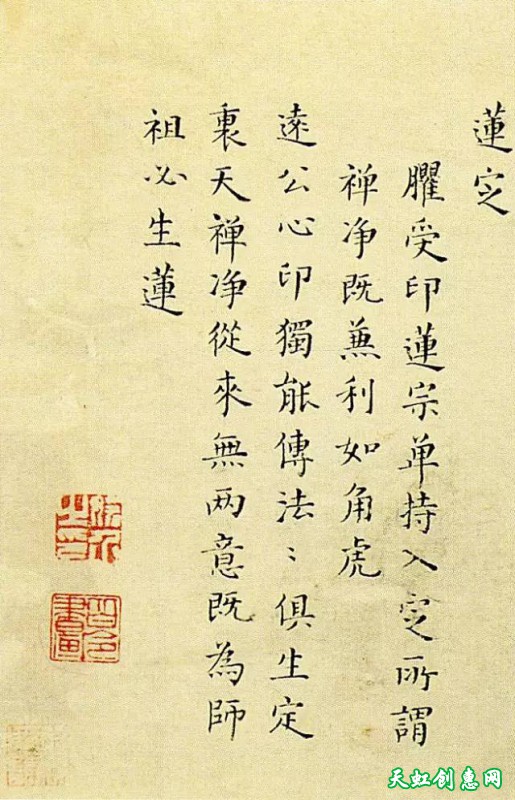 蓮㝎
臞受印蓮宗单持入㝎所謂
禅净既蒹利如角虎
逺公心印獨能傳法〻俱生定
裏天禅净從來無两意既為師
祖必生蓮
天虹创惠网